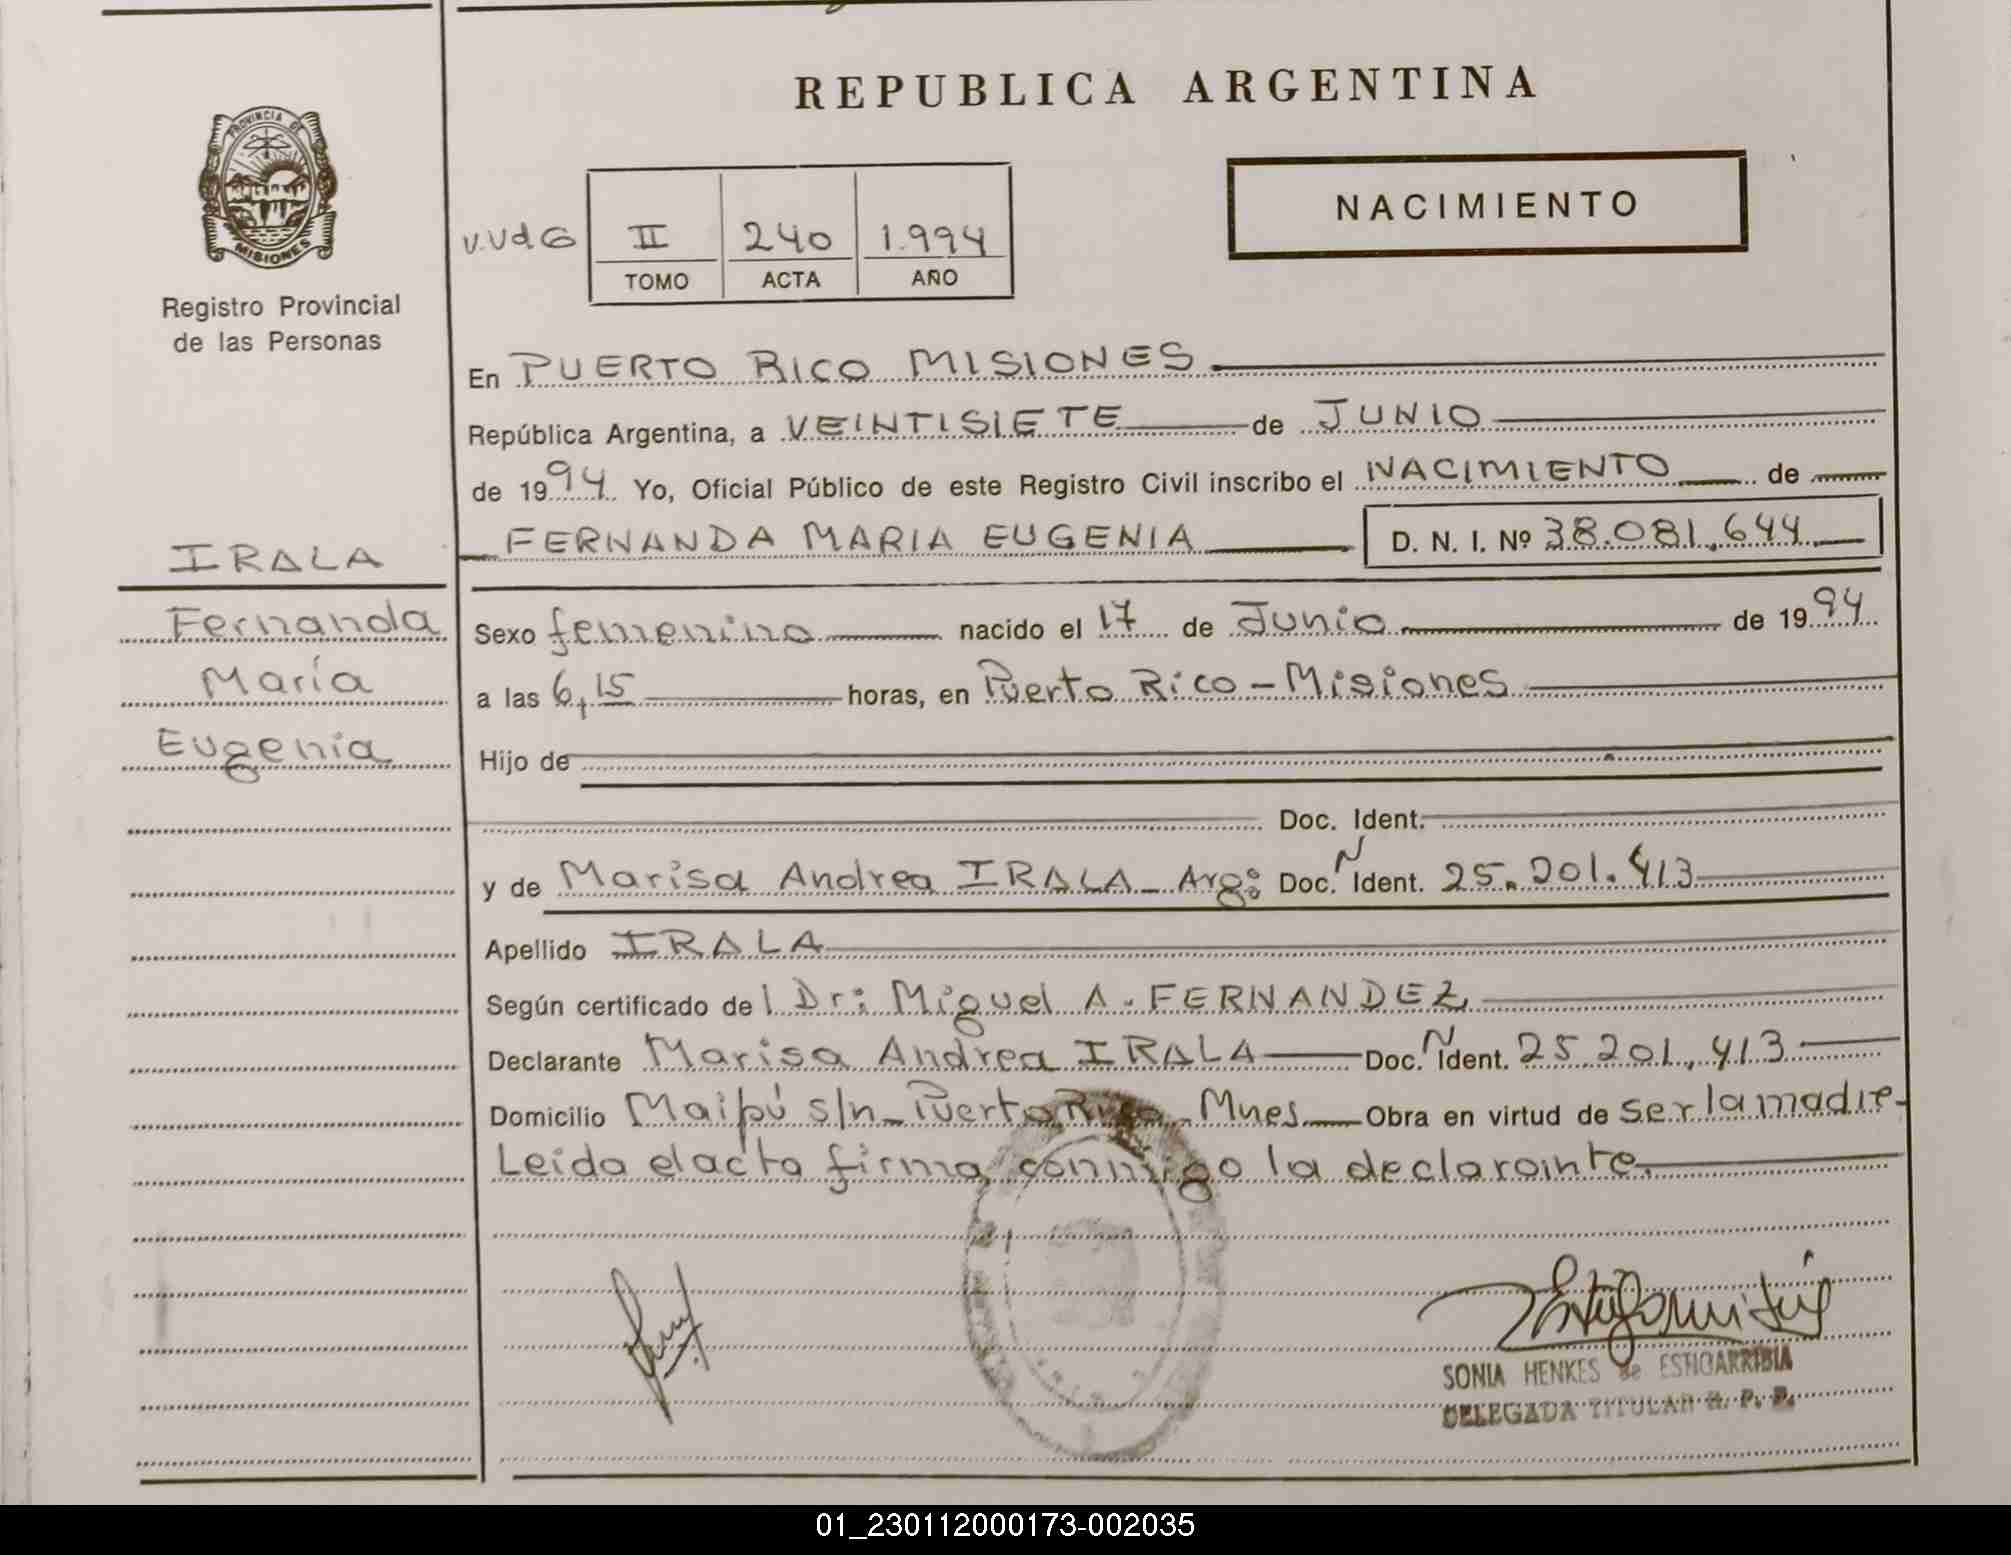 REPUBLICA ARGENTINA
PROVINCIA DE
MISIONES
Registro Provincial
de las Personas
NACIMIENTO
v.vd G II 240 1.994
TOMO ACTA AÑO
En PUERTO RICO MISIONES
República Argentina, a VEINTISIETE de JUNIO
de 1994 Yo, Oficial Público de este Registro Civil inscribo el NACIMIENTO de
FERNANDA MARIA EUGENIA D. N. I. Nº 38.081.644
IRALA
Fernanda
María
Eugenia
Sexo femenino nacido el 17 de Junio de 1994
a las 6,15 horas, en Puerto Rico - Misiones
Hijo de
Doc. Ident.
y de Marisa Andrea IRALA - Arg: Doc. Ñ Ident. 25.201.413
Apellido IRALA
Según certificado de l Dr: Miguel A. FERNANDEZ
Declarante Marisa Andrea IRALA Doc. Ñ Ident. 25.201.413
Domicilio Maipú s/n - Puerto Rico - Mnes Obra en virtud de ser la madre-
Leida el acta firma conmigo la declarante.
SONIA HENKES de ESTIGARRIBIA
DELEGADA TITULAR R. P. P.
01_230112000173-002035